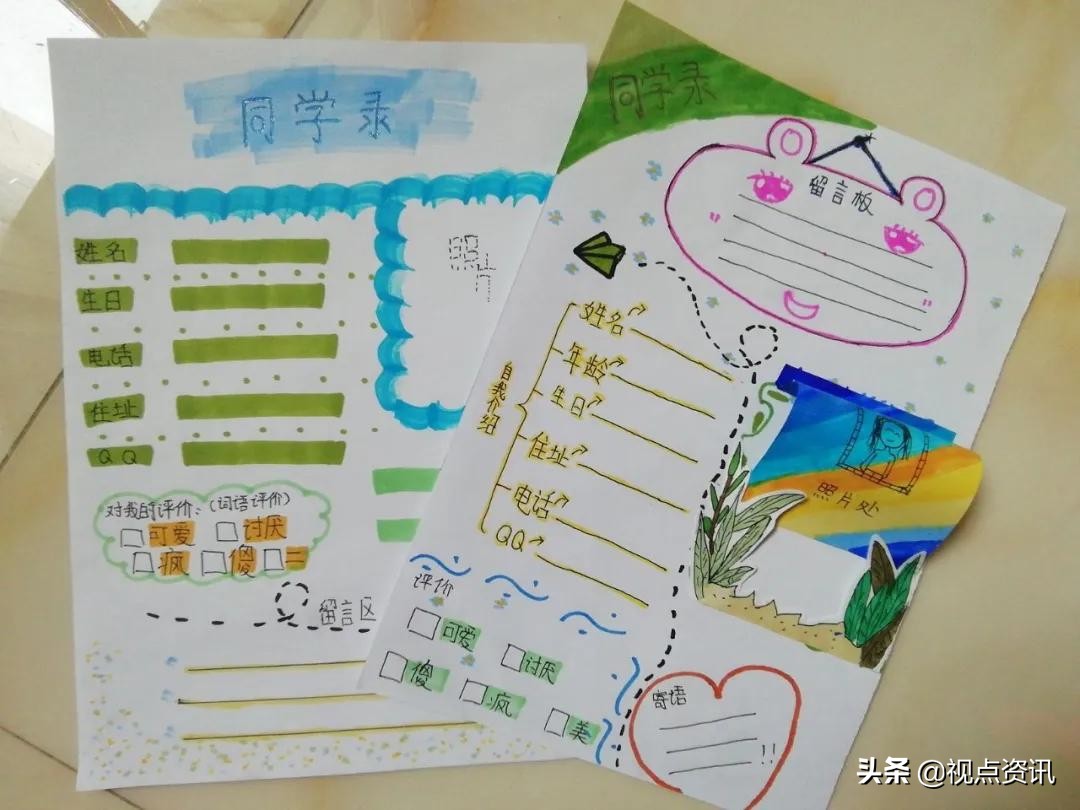 同学录
照片
姓名
生日
电话
住址
QQ
对我的评价:(词语评价)
可爱 讨厌
疯 傻 二
留言区
同学录
留言板
自我介绍
姓名
年龄
生日
住址
电话
QQ
照片处
评价
可爱 讨厌
傻 疯 美
寄语
!!
头条 @视点资讯